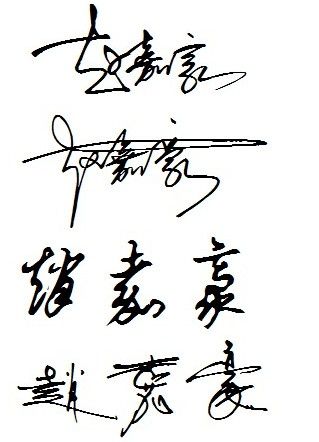 赵嘉豪
赵嘉豪
趙嘉豪
趙嘉豪